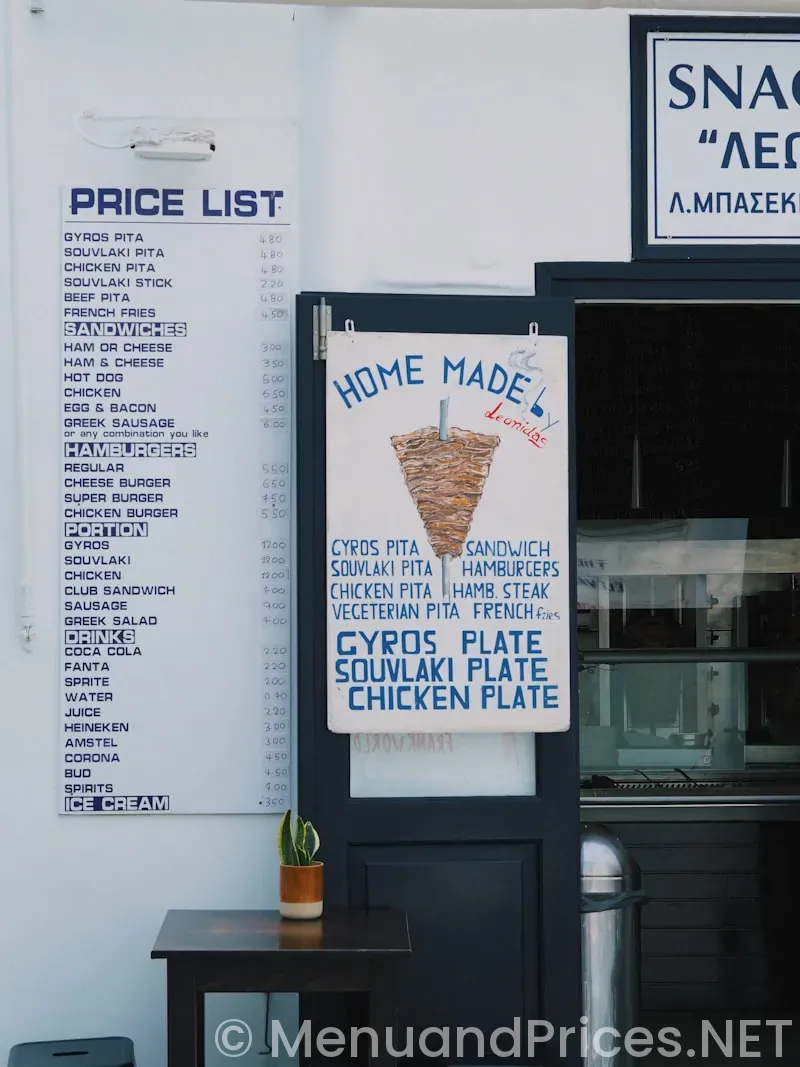 PRICE LIST
GYROS PITA 4.80
SOUVLAKI PITA 4.80
CHICKEN PITA 4.80
SOUVLAKI STICK 2.20
BEEF PITA 4.80
FRENCH FRIES 4.50
SANDWICHES
HAM OR CHEESE 3.00
HAM & CHEESE 3.50
HOT DOG 5.00
CHICKEN 6.50
EGG & BACON 4.50
GREEK SAUSAGE 6.00
or any combination you like
HAMBURGERS
REGULAR 5.50
CHEESE BURGER 6.50
SUPER BURGER 7.50
CHICKEN BURGER 5.50
PORTION
GYROS 12.00
SOUVLAKI 12.00
CHICKEN 12.00
CLUB SANDWICH
SAUSAGE
GREEK SALAD
DRINKS
COCA COLA 2.20
FANTA 2.20
SPRITE
WATER 0.70
JUICE 2.20
HEINEKEN 3.00
AMSTEL 3.00
CORONA 4.50
BUD 4.50
SPIRITS 7.00
ICE CREAM 3.50
HOME MADE by
Leonidas
GYROS PITA SANDWICH
SOUVLAKI PITA HAMBURGERS
CHICKEN PITA HAMB. STEAK
VEGETERIAN PITA FRENCH fries
GYROS PLATE
SOUVLAKI PLATE
CHICKEN PLATE
FRANKWORLD
SNAC
“ΛΕΩ
Λ.ΜΠΑΣΕΚ
© MenuandPrices.NET